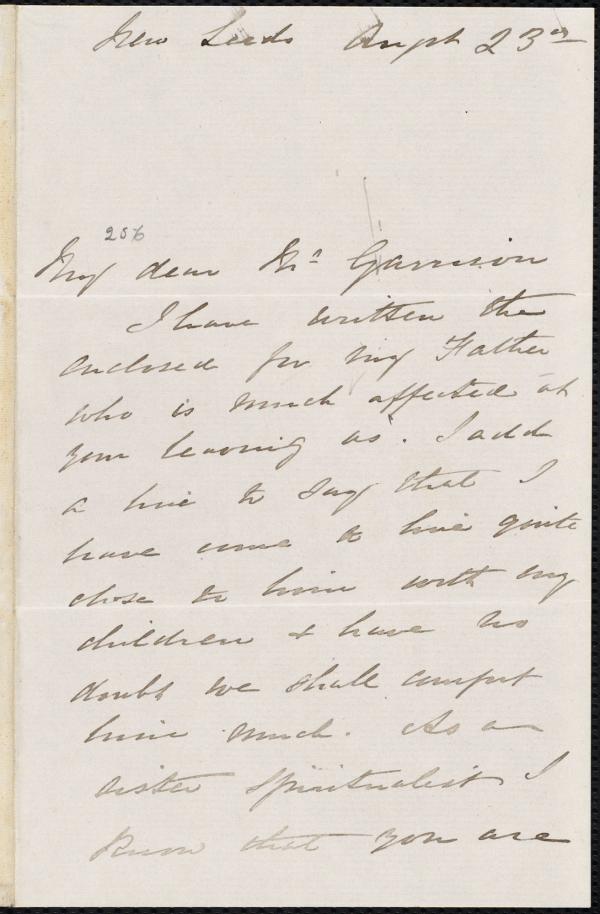 New Leeds Augst 23rd
256
My dear Mr Garrison
I have written the
enclosed for my Father
who is much affected at
your leaving us. I add
a line to say that I
have come to live quite
close to him with my
children & have no
doubt we shall comfort
him much. As a
sister Spiritualist I
know that you are